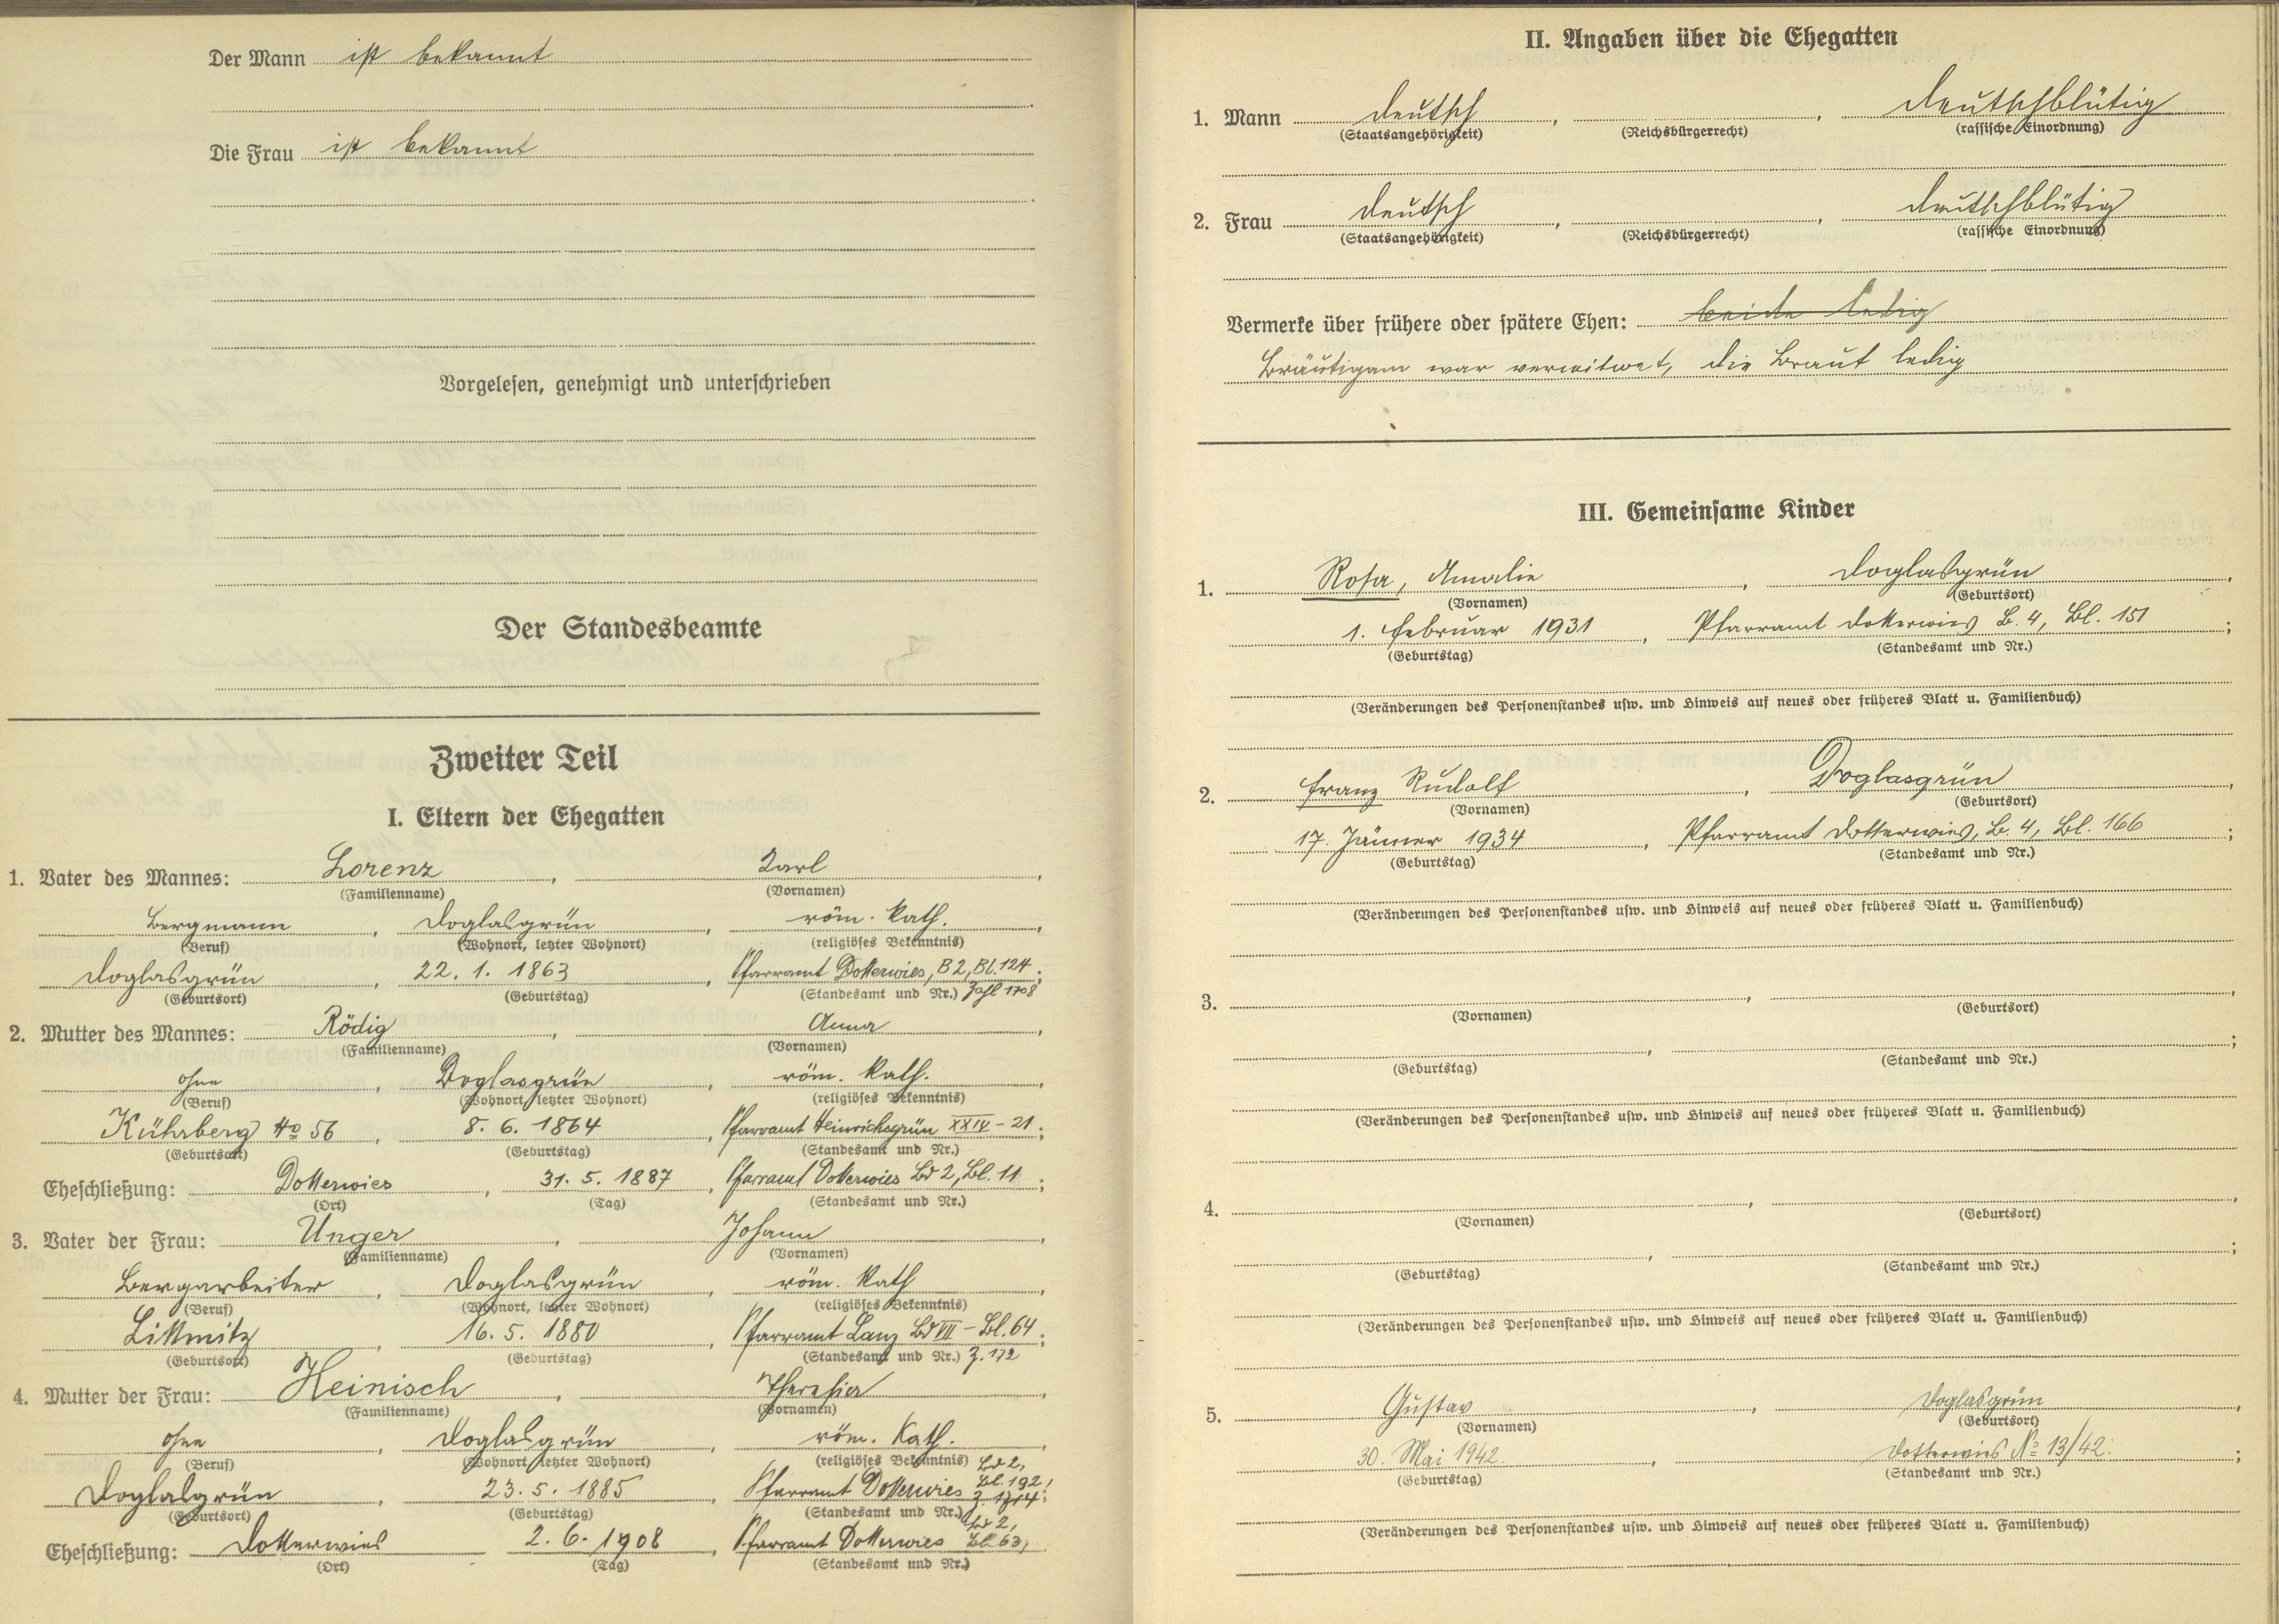 Der Mann ist bekannt
Die Frau ist bekannt
Vorgelesen, genehmigt und unterschrieben
Der Standesbeamte
Zweiter Teil
I. Eltern der Ehegatten
1. Vater des Mannes: Lorenz, Karl,
(Familienname) (Vornamen)
Bergmann, Doglasgrün, röm. kath.,
(Beruf) (Wohnort, letzter Wohnort) (religiöses Bekenntnis)
Doglasgrün, 22. 1. 1863, Pfarramt Dotterwies, B 2, Bl. 124;
(Geburtsort) (Geburtstag) (Standesamt und Nr.) Zahl 1708
2. Mutter des Mannes: Rödig, Anna,
(Familienname) (Vornamen)
ohne, Doglasgrün, röm. kath.,
(Beruf) (Wohnort, letzter Wohnort) (religiöses Bekenntnis)
Kührberg No 56, 8. 6. 1864, Pfarramt Heinrichsgrün XXIV – 21;
(Geburtsort) (Geburtstag) (Standesamt und Nr.)
Eheschließung: Dotterwies, 31. 5. 1887, Pfarramt Dotterwies Bd 2, Bl. 11;
(Ort) (Tag) (Standesamt und Nr.)
3. Vater der Frau: Unger, Johann,
(Familienname) (Vornamen)
Bergarbeiter, Doglasgrün, röm. kath,
(Beruf) (Wohnort, letzter Wohnort) (religiöses Bekenntnis)
Littmitz, 16. 5. 1880, Pfarramt Lanz Bd VII – Bl. 64;
(Geburtsort) (Geburtstag) (Standesamt und Nr.) Z. 172
4. Mutter der Frau: Heinisch, Theresia,
(Familienname) (Vornamen)
ohne, Doglasgrün, röm. kath.,
(Beruf) (Wohnort, letzter Wohnort) (religiöses Bekenntnis) Bd 2,
Doglasgrün, 23. 5. 1885, Pfarramt Dotterwies Bl. 192, Z. 1714;
(Geburtsort) (Geburtstag) (Standesamt und Nr.) Bd 2,
Eheschließung: Dotterwies 2. 6. 1908, Pfarramt Dotterwies Bl. 63,
(Ort) (Tag) (Standesamt und Nr.)
II. Angaben über die Ehegatten
1. Mann deutsch, , deutschblütig
(Staatsangehörigkeit) (Reichsbürgerrecht) (rassische Einordnung)
2. Frau deutsch, , deutschblütig
(Staatsangehörigkeit) (Reichsbürgerrecht) (rassische Einordnung)
Vermerke über frühere oder spätere Ehen: beide ledig
Bräutigam war verwitwet, die Braut ledig
III. Gemeinsame Kinder
1. Rosa, Amalie, Doglasgrün,
(Vornamen) (Geburtsort)
1. Februar 1931, Pfarramt Dotterwies B. 4, Bl. 151;
(Geburtstag) (Standesamt und Nr.)
(Veränderungen des Personenstandes usw. und Hinweis auf neues oder früheres Blatt u. Familienbuch)
2. Franz Rudolf, Doglasgrün,
(Vornamen) (Geburtsort)
17. Jänner 1934, Pfarramt Dotterwies, B. 4, Bl. 166;
(Geburtstag) (Standesamt und Nr.)
(Veränderungen des Personenstandes usw. und Hinweis auf neues oder früheres Blatt u. Familienbuch)
3. , ,
(Vornamen) (Geburtsort)
, ;
(Geburtstag) (Standesamt und Nr.)
(Veränderungen des Personenstandes usw. und Hinweis auf neues oder früheres Blatt u. Familienbuch)
4. , ,
(Vornamen) (Geburtsort)
, ;
(Geburtstag) (Standesamt und Nr.)
(Veränderungen des Personenstandes usw. und Hinweis auf neues oder früheres Blatt u. Familienbuch)
5. Gustav, Doglasgrün,
(Vornamen) (Geburtsort)
30. Mai 1942., Dotterwies No 13/42.;
(Geburtstag) (Standesamt und Nr.)
(Veränderungen des Personenstandes usw. und Hinweis auf neues oder früheres Blatt u. Familienbuch)